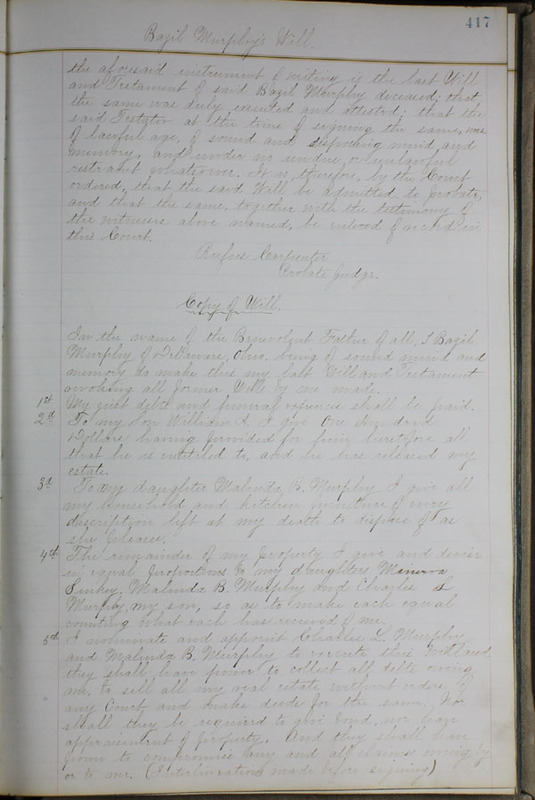 417
Bazil Murphy's Will.
the aforesaid instrument of writing is the last Will
and Testament of said Bazil Murphy deceased; that
the same was duly executed and attested; that the
said Testator at the time of signing the same, was
of lawful age, of sound and disposing mind, and
memory, and under no undue, or unlawful
restraint whatsoever. It is, therefore, by the Court
ordered, that the said Will be admitted to probate,
and that the same, together with the testimony of
the witnesses above named, be entered of record in
this Court.
Rufus Carpenter
Probate Judge.
Copy of Will.
In the name of the Benevolent Father of all, I Bazil
Murphy of Delaware, Ohio, being of sound mind and
memory do make this my last Will and Testament
revoking all former Wills by me made.
1st My just debts and funeral expences shall be paid.
2d To my son William A. I give One hundred
Dollars having provided for him heretofore all
that he is entitled to, and he has released my
estate.
3d To my daughter Malinda B. Murphy I give all
my household and kitchen furniture of every
description left at my death to dispose of as
she pleases.
4th The remainder of my property I give and devise
in equal proportions to my daughters Minerva
Malinda B. Murphy and Charles L
Murphy, my son, so as to make each equal
counting what each has received of me.
5th I nominate and appoint Charles L. Murphy
and Malinda B. Murphy to execute this Will and
they shall have power to collect all debts owing
me, to sell all my real estate without orders of
any Court and make deeds for the same. Nor
shall they be required to give bond, nor have
appraisement of property. And they shall have
power to compromise any and all claims owing by
or to me. (Interlineations made before signing)